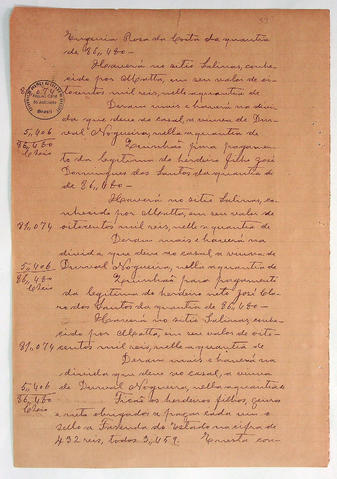 Eugenia Rosa da Costa da quantia
de 86,480-
Haverá no sitio Salinas, conhe-
cido por Matta, em seu valor de oi-
81,074 tocentos mil reis, nella a quantia de
Deram mais e haverá na di-
vida que deve ao casal, a viuva de Dur-
5,406 val Nogueira, nella a quantia de
86,480 Quinhão para pagamen-
to da legitima do herdeiro filho José
Domingues dos Santos da quantia de
de 86,480-
Haverá no sitio Salinas, co-
nhecido por Matta, em seu valor de
81,074 oitocentos mil reis, nella a quantia de
Deram mais e haverá na
divida, que deve ao casal a viuva de
5,406 Durval Nogueira, nella a quantia de
86,480 Quinhão para pagamento
da legitima do herdeiro neto José
dos Santos da quantia de 86,480-
Haverá no sitio Salinas, conhe-
cido por Matta, em seu valor de oito-
81,074 centos mil reis, nella a quantia de
Deram mais e haverá na
divida que deve ao casal, a viuva
5,406 de Durval Nogueira, nella a quantia de
86,480 Ficão os herdeiros filhos, genro
e neto obrigados a pagar cada um o
sello a Fazenda do Estado na cifra de
432 reis, todos 3,459. E nesta con-
Brasil